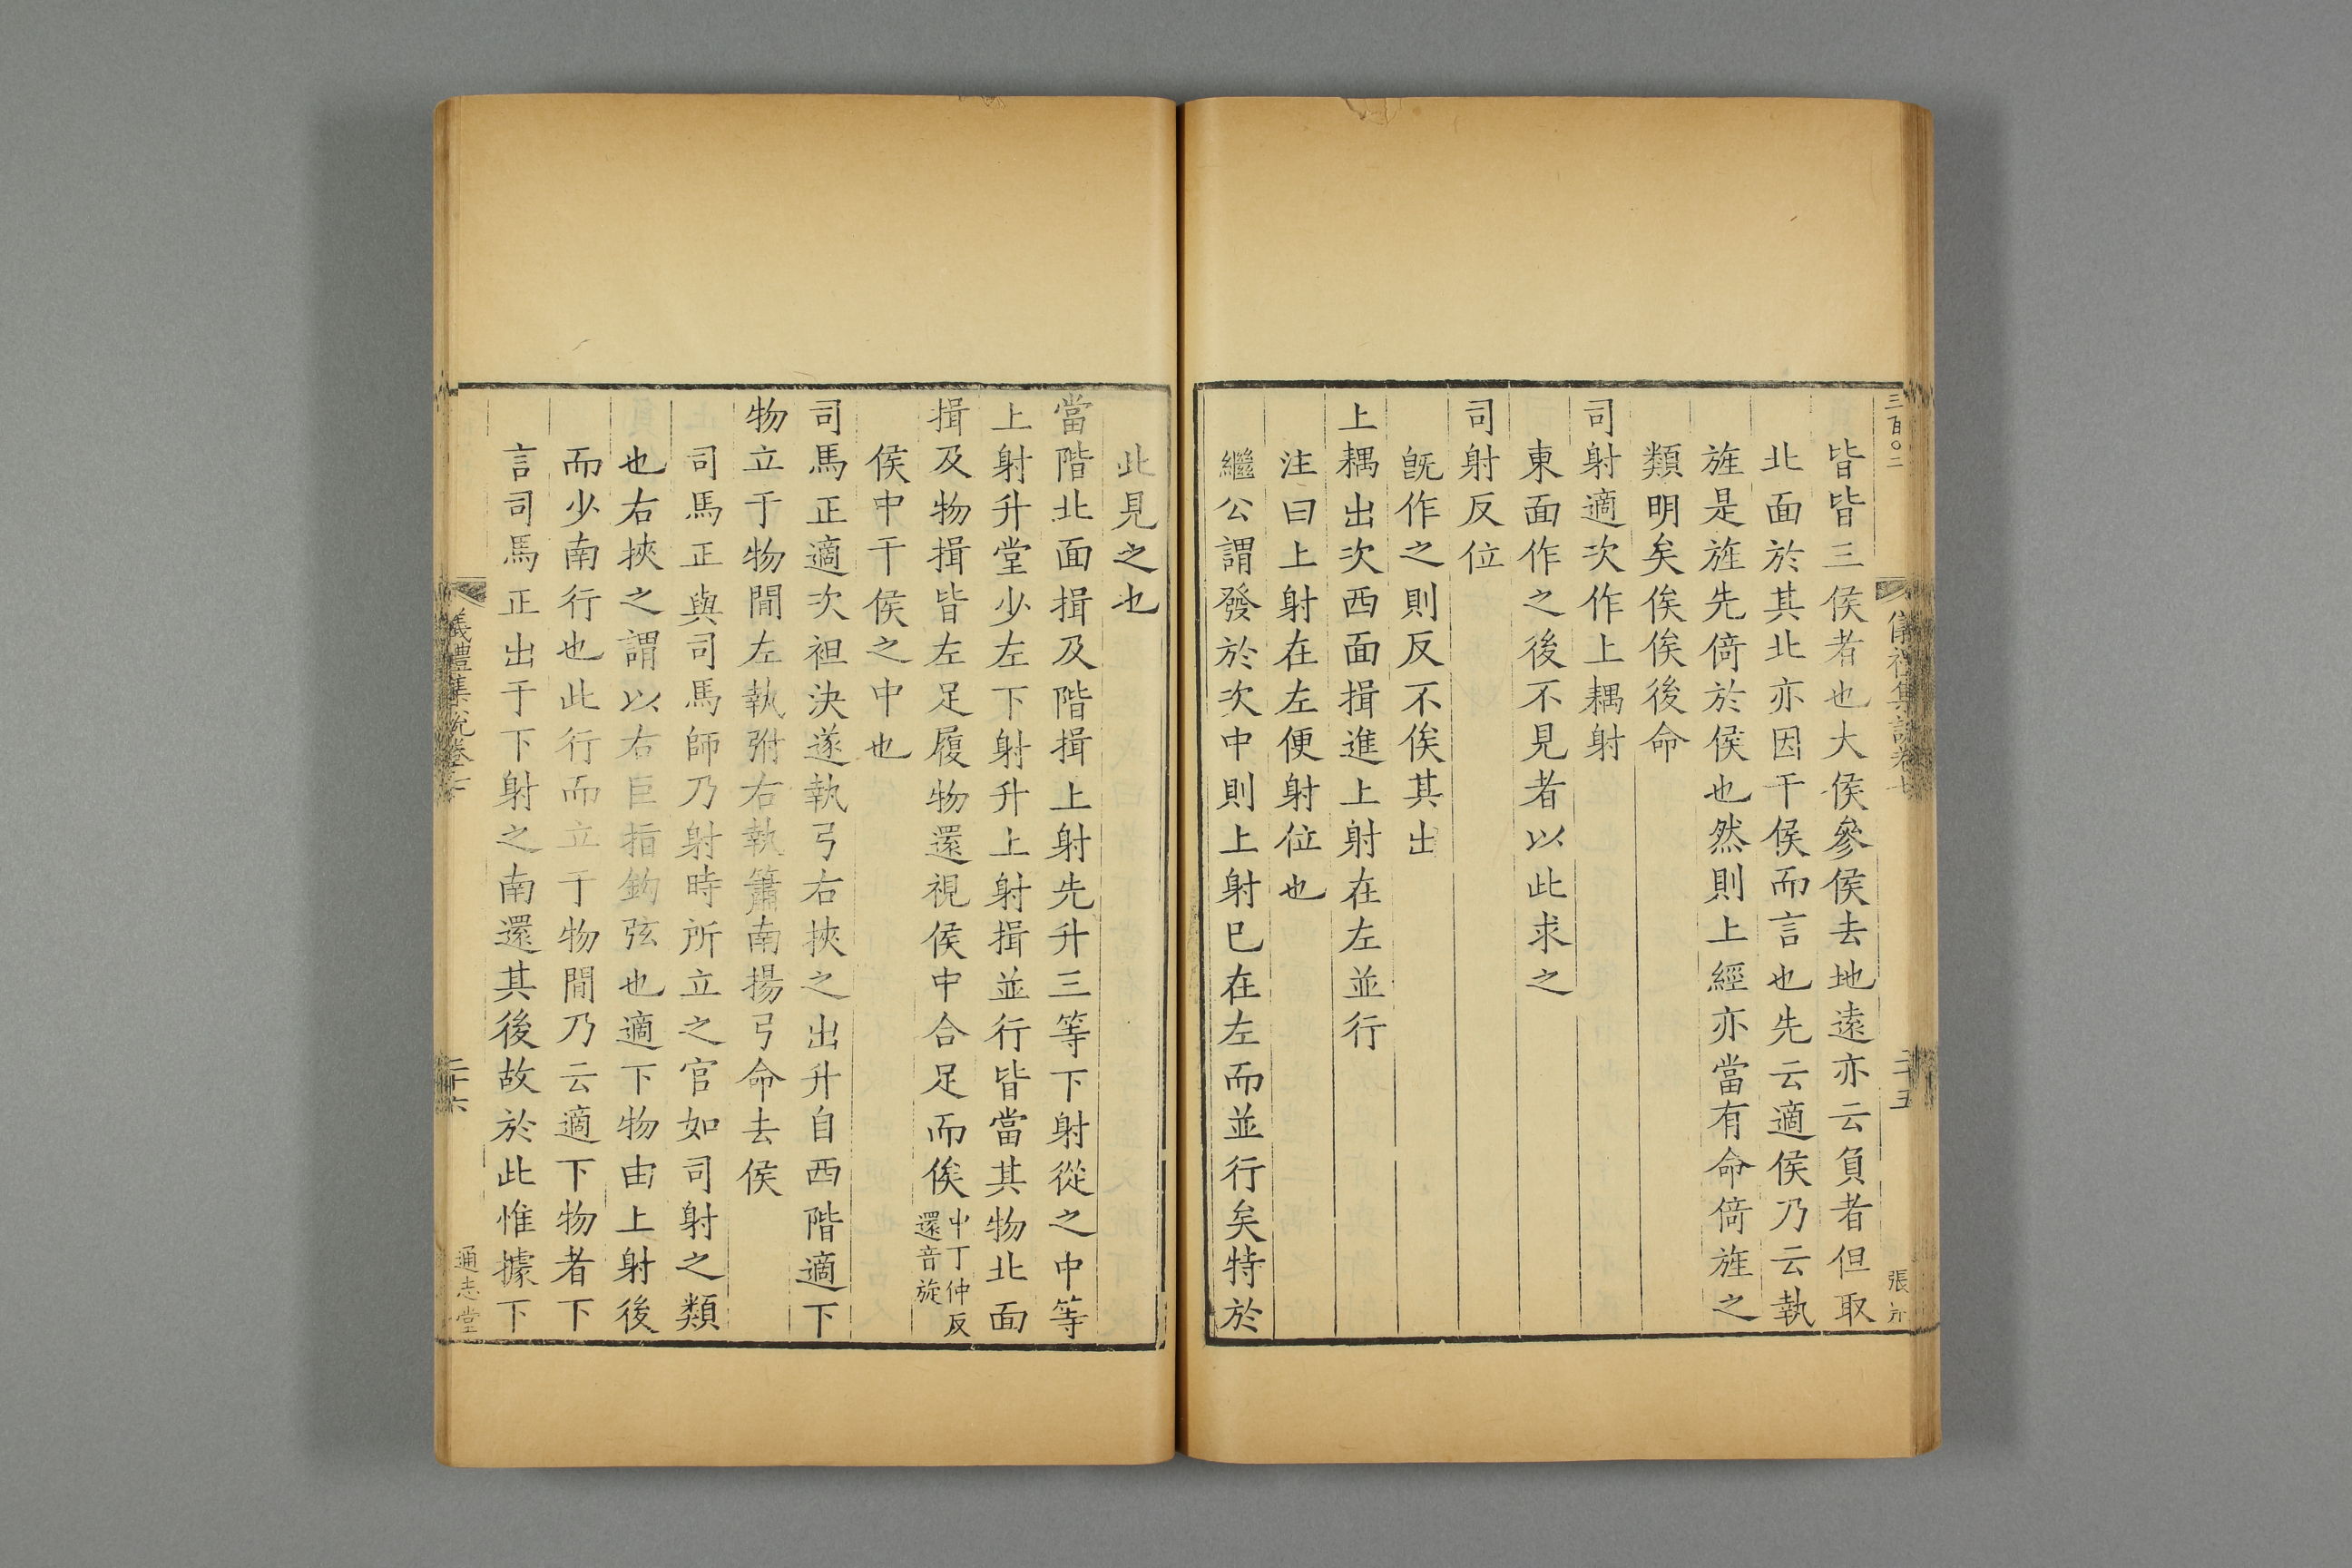 三百〇二
皆皆三侯者也大侯參侯去地遠亦云負者但取
北面於其北亦因干侯而言也先云適侯乃云執
旌是旌先倚於侯也然則上經亦當有命倚旌之
類明矣俟俟後命
司射適次作上耦射
東面作之後不見者以此求之
司射反位
旣作之則反不俟其出
上耦出次西面揖進上射在左並行
注曰上射在左便射位也
繼公謂發於次中則上射已在左而並行矣特於
此見之也
當階北面揖及階揖上射先升三等下射從之中等
上射升堂少左下射升上射揖並行皆當其物北面
揖及物揖皆左足履物還視侯中合足而俟中丁仲反還音旋
侯中干侯之中也
司馬正適次袒決遂執弓右挾之出升自西階適下
物立于物閒左執弣右執簫南揚弓命去侯
司馬正與司馬師乃射時所立之官如司射之類
也右挾之謂以右巨指鉤弦也適下物由上射後
而少南行也此行而立于物閒乃云適下物者下
言司馬正出于下射之南還其後故於此惟據下
儀禮集說卷七
二十六
通志堂